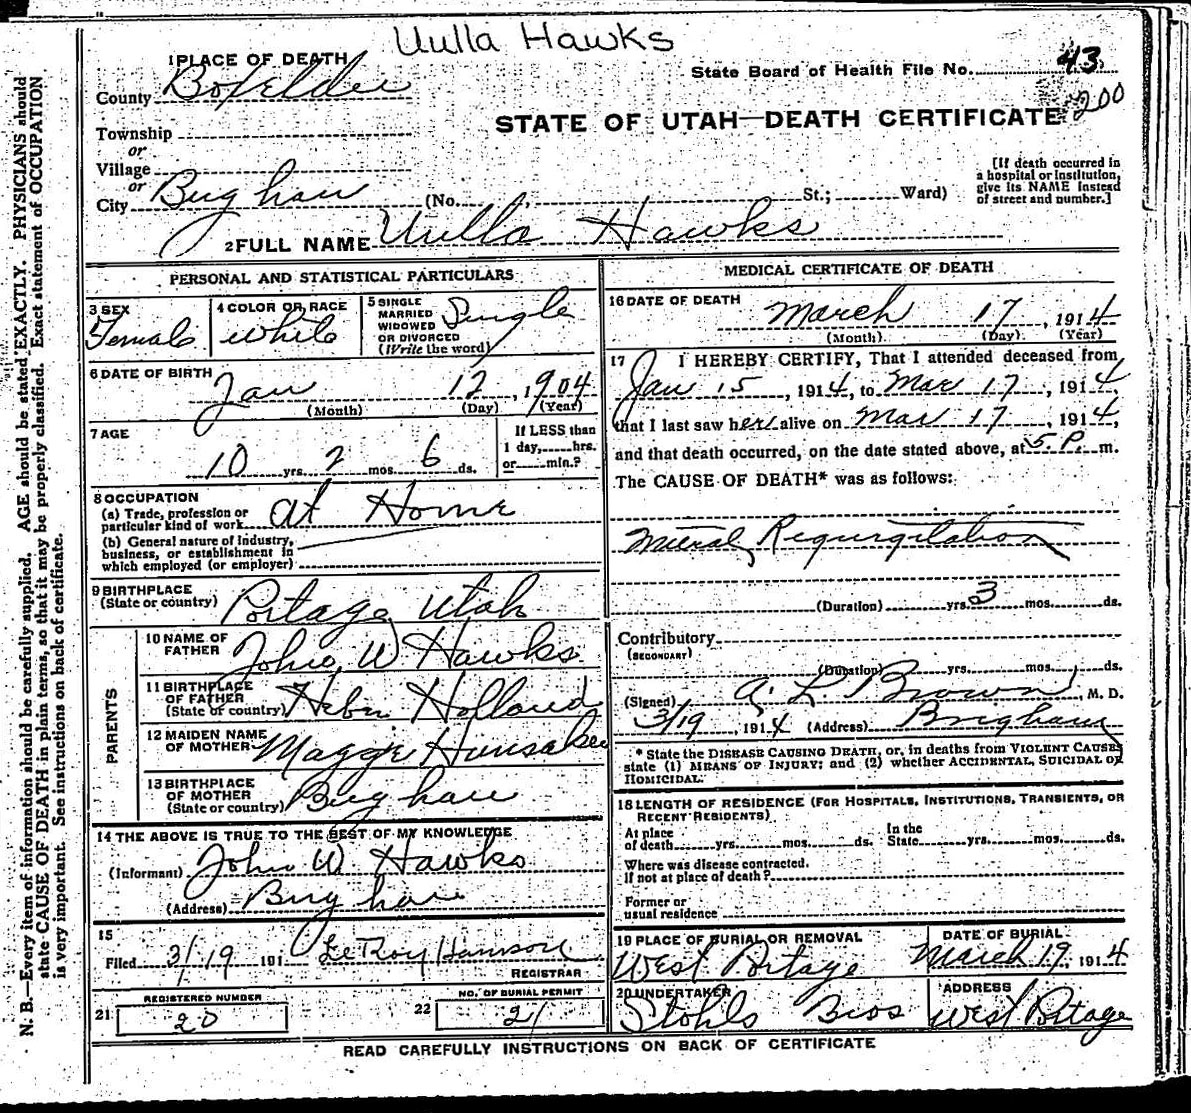 Uulla Hawks
1 PLACE OF DEATH
State Board of Health File No. 43
200
County Boxelder
STATE OF UTAH—DEATH CERTIFICATE
Township
or
Village
or
City Brigham (No. St.; Ward)
[If death occurred in
a hospital or institution,
give its NAME instead
of street and number.]
2 FULL NAME Uulla Hawks
PERSONAL AND STATISTICAL PARTICULARS
3 SEX
Female
4 COLOR OR RACE
white
5 SINGLE
MARRIED
WIDOWED
OR DIVORCED
(Write the word)
Single
6 DATE OF BIRTH
Jan 12, 1904
(Month) (Day) (Year)
7 AGE
10 yrs. 2 mos. 6 ds.
If LESS than
1 day, hrs.
or min.?
8 OCCUPATION
(a) Trade, profession or
particular kind of work at Home
(b) General nature of Industry,
business, or establishment in
which employed (or employer)
9 BIRTHPLACE
(State or country) Portage Utah
PARENTS
10 NAME OF
FATHER John W Hawks
11 BIRTHPLACE
OF FATHER
(State or country) Holland
12 MAIDEN NAME
OF MOTHER Maggie Hunsaker
13 BIRTHPLACE
OF MOTHER
(State or country) Brigham
14 THE ABOVE IS TRUE TO THE BEST OF MY KNOWLEDGE
(Informant) John W Hawks
(Address) Brigham
15
Filed 3/19 191 LeRoy Hanson
REGISTRAR
REGISTERED NUMBER
21 20
NO. OF BURIAL PERMIT
22 21
MEDICAL CERTIFICATE OF DEATH
16 DATE OF DEATH
March 17, 1914
(Month) (Day) (Year)
17 I HEREBY CERTIFY, That I attended deceased from
Jan 15, 1914, to Mar 17, 1914,
that I last saw her alive on Mar 17, 1914,
and that death occurred, on the date stated above, at 5 P. m.
The CAUSE OF DEATH* was as follows:
Mitral Regurgitation
(Duration) yrs. 3 mos. ds.
Contributory
(SECONDARY)
(Duration) yrs. mos. ds.
(Signed) A L Brown, M. D.
3/19, 1914 (Address) Brigham
* State the DISEASE CAUSING DEATH, or, in deaths from VIOLENT CAUSES
state (1) MEANS OF INJURY; and (2) whether ACCIDENTAL, SUICIDAL OR
HOMICIDAL.
18 LENGTH OF RESIDENCE (FOR HOSPITALS, INSTITUTIONS, TRANSIENTS, OR
RECENT RESIDENTS)
At place
of death yrs. mos. ds.
In the
State yrs. mos. ds.
Where was disease contracted.
If not at place of death?
Former or
usual residence
19 PLACE OF BURIAL OR REMOVAL
West Portage
DATE OF BURIAL
March 19, 1914
20 UNDERTAKER
Stohls Bros
ADDRESS
West Portage
READ CAREFULLY INSTRUCTIONS ON BACK OF CERTIFICATE
N. B.—Every item of information should be carefully supplied. AGE should be stated EXACTLY. PHYSICIANS should
state CAUSE OF DEATH in plain terms, so that it may be properly classified. Exact statement of OCCUPATION
is very important. See instructions on back of certificate.